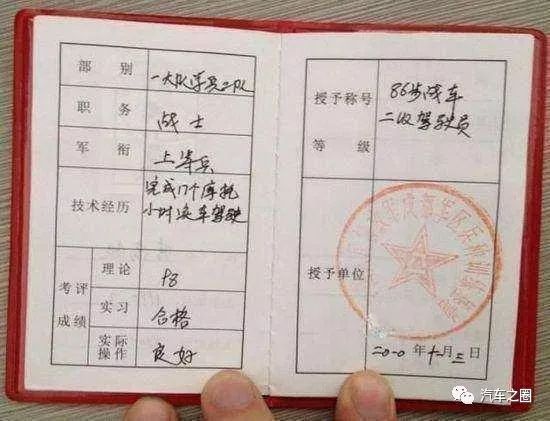 部 别
一大队学兵二队
职 务
战士
军 衔
上等兵
技术经历
完成17个摩托
小时实车驾驶
考评
成绩
理论
98
实习
合格
实际
操作
良好
授予称号
等 级
86步战车
二级驾驶员
授予单位
二〇一〇年十一月三日
汽车之圈